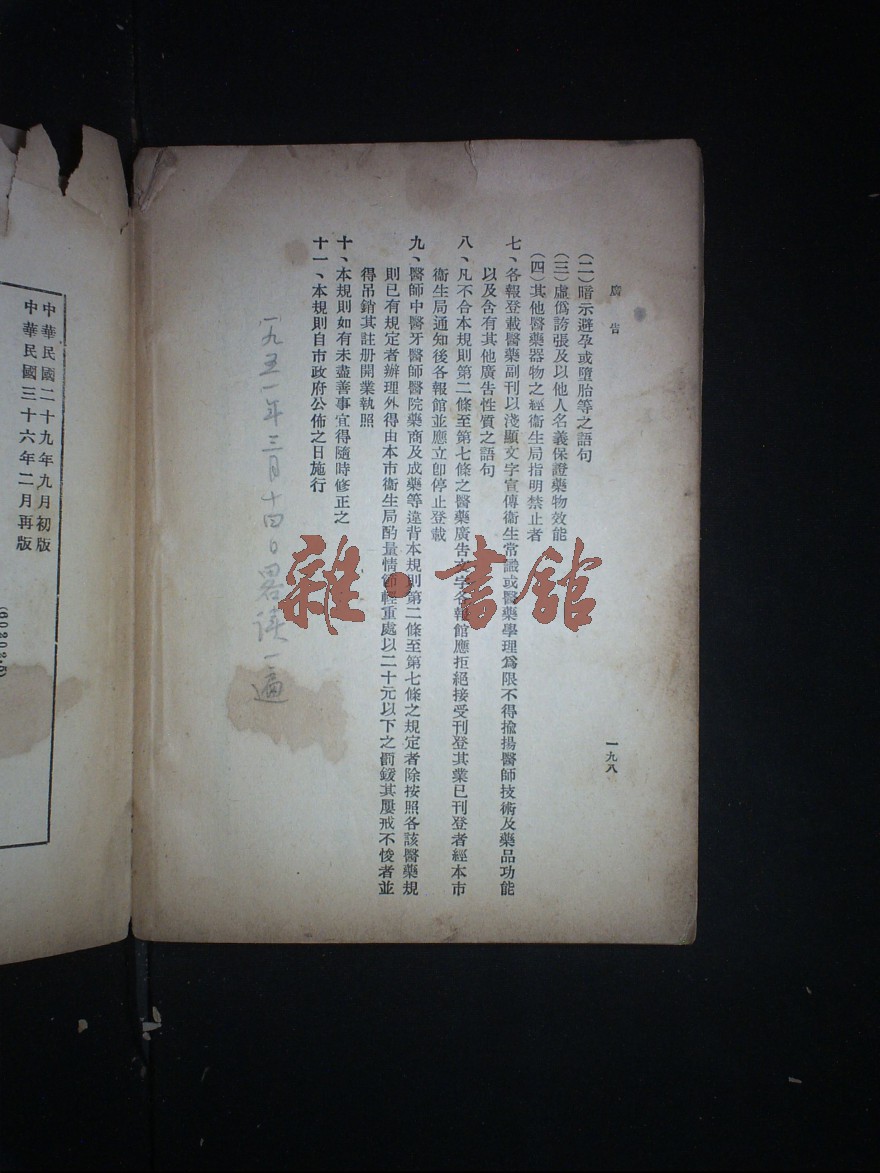 廣告
一九八
(二)暗示避孕或墮胎等之語句
(三)虛僞誇張及以他人名義保證藥物效能
(四)其他醫藥器物之經衞生局指明禁止者
七、各報登載醫藥副刊以淺顯文字宣傳衞生常識或醫藥學理爲限不得揄揚醫師技術及藥品功能
以及含有其他廣告性質之語句
八、凡不合本規則第二條至第七條之醫藥廣告文字各報館應拒絕接受刊登其業已刊登者經本市
衞生局通知後各報館並應立卽停止登載
九、醫師中醫牙醫師醫院藥商及成藥等違背本規則第二條至第七條之規定者除按照各該醫藥規
則已有規定者辦理外得由本市衞生局酌量情節輕重處以二十元以下之罰鍰其屢戒不悛者並
得吊銷其註册開業執照
十、本規則如有未盡善事宜得隨時修正之
十一、本規則自市政府公佈之日施行
一九五一年三月十四日畧读一遍
雜·書館
中華民國二十九年九月初版
中華民國三十六年二月再版